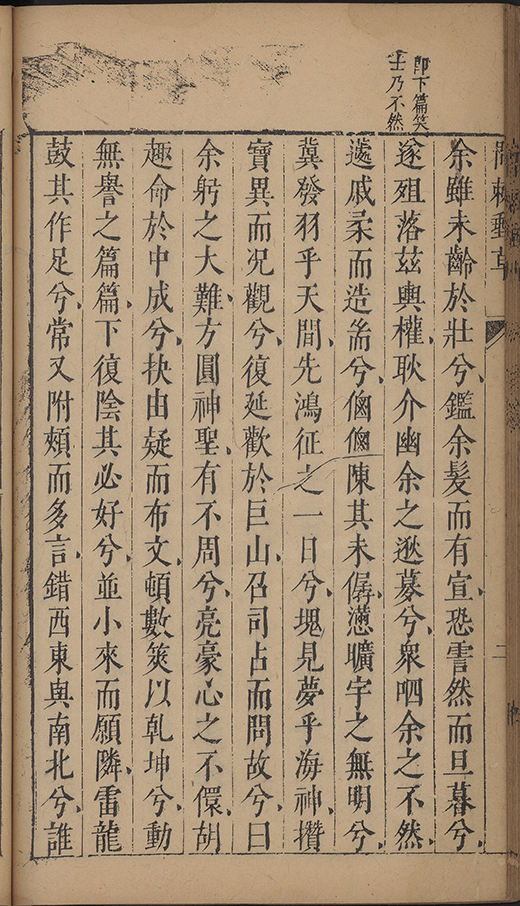 即下篇笑
士乃不然
二
余雖未齡於壯兮鑑余髮而有宣恐霅然而旦暮兮
遂殂落茲輿權耿介幽余之逖募兮衆呬余之不然
薳戚柔而造耑兮偭偭陳其未僝懣曠宇之無明兮
冀發羽乎天間先鴻征之一日兮塊見夢乎海神攢
寶異而况觀兮復延歡於巨山召司占而問故兮曰
余躬之大難方圓神聖有不周兮亮豪心之不儇胡
趣命於中成兮抉由疑而布文頓數筴以乾坤兮動
無譽之篇篇下復陰其必好兮並小來而願隣雷龍
鼓其作足兮常又附頰而多言錯西東與南北兮誰